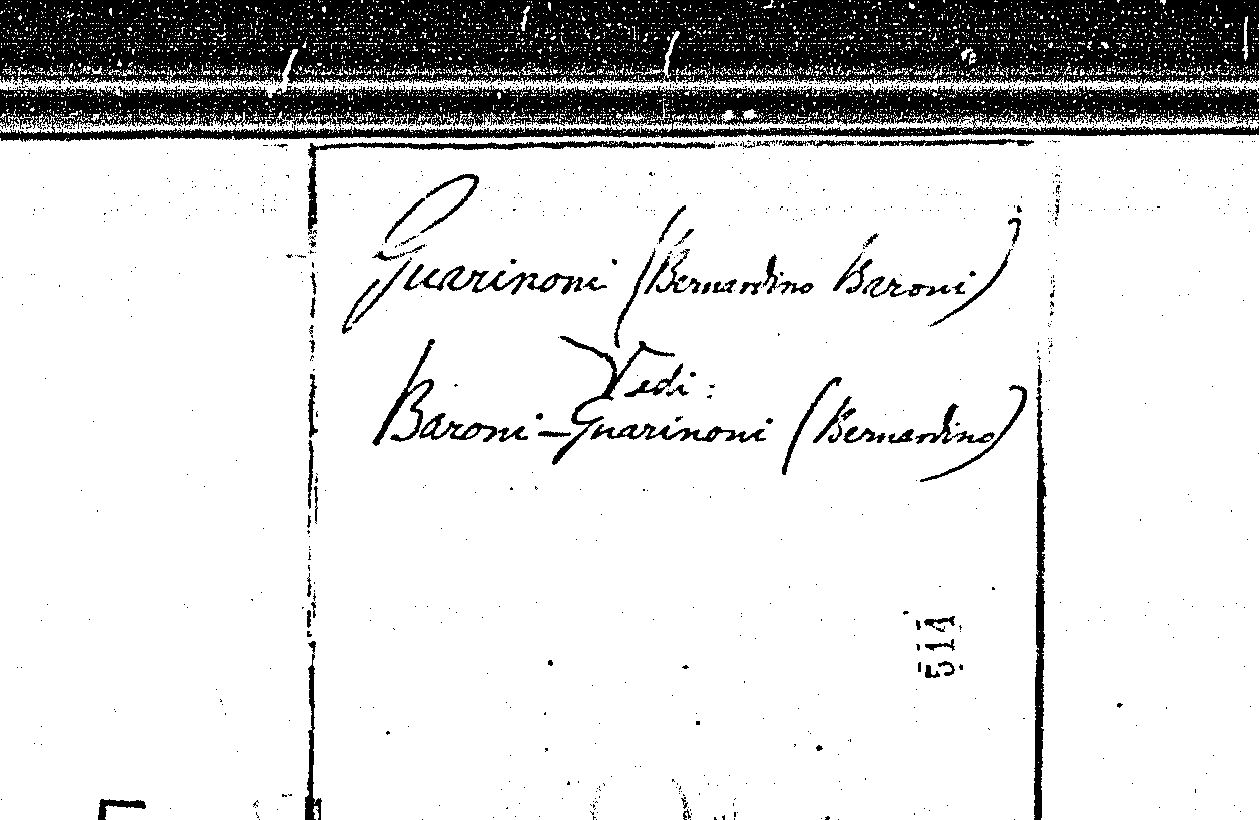 Guarinoni (Bernardino Baroni)
Vedi:
Baroni-Guarinoni (Bernardino)
514